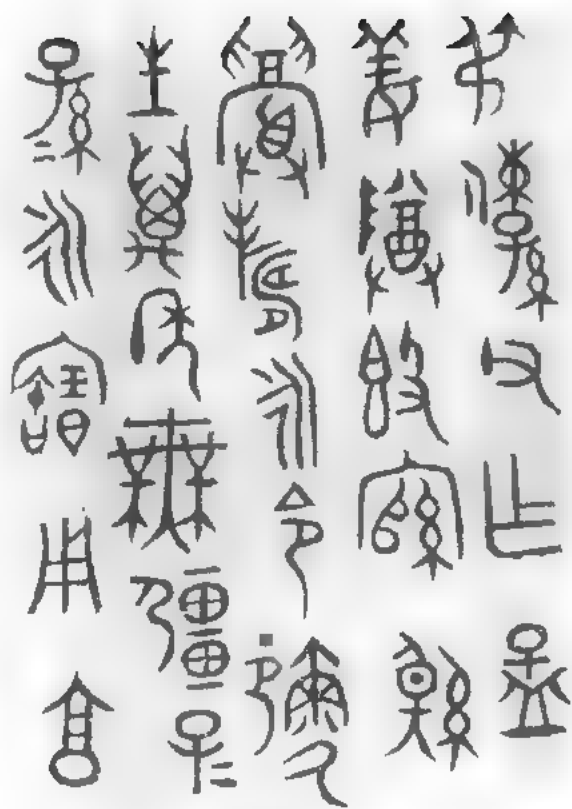 叔孫父乍孟
姜尊𣪘綰綽
眉壽永令彌氒
生萬年無彊子=
孫=永寶用享